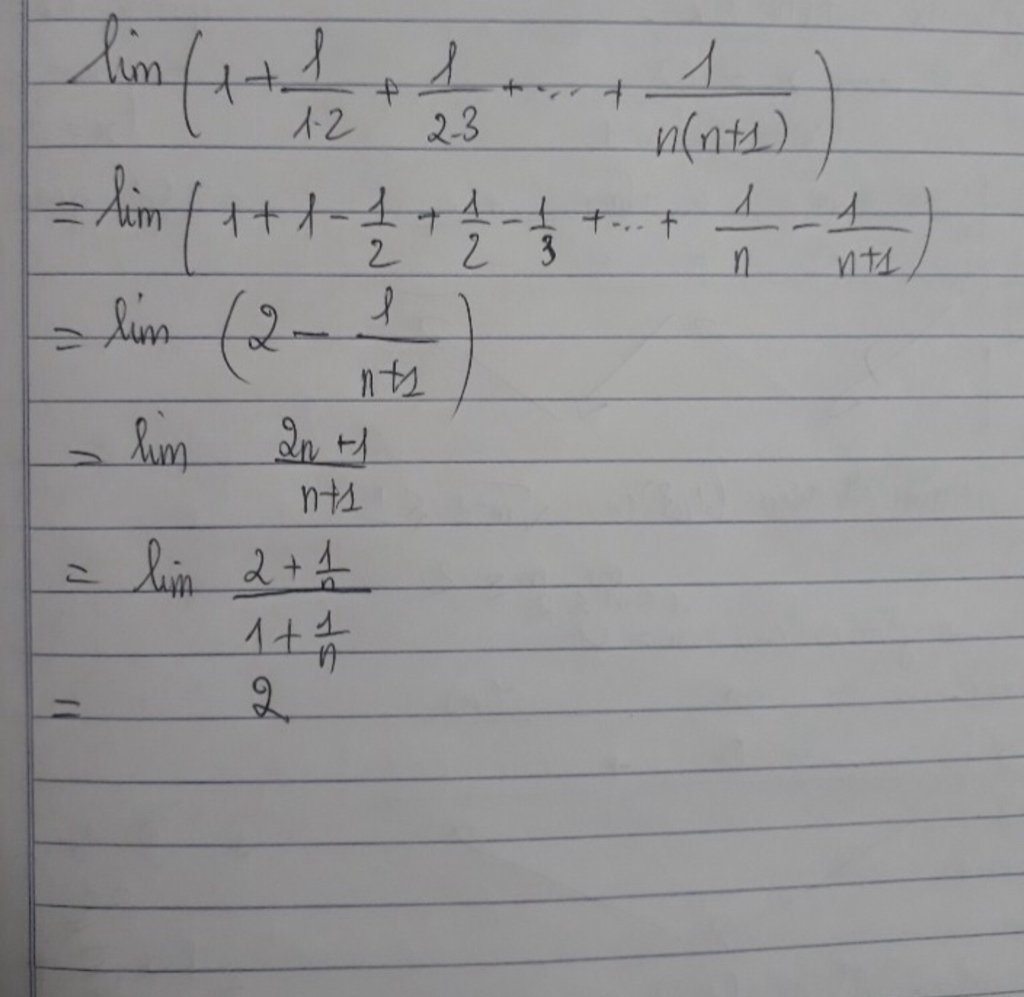 lim ( 1 + 1/1·2 + 1/2·3 + ... + 1/n(n+1) )
= lim ( 1 + 1 - 1/2 + 1/2 - 1/3 + ... + 1/n - 1/n+1 )
= lim ( 2 - 1/n+1 )
= lim 2n+1/n+1
= lim 2 + 1/n / 1 + 1/n
= 2